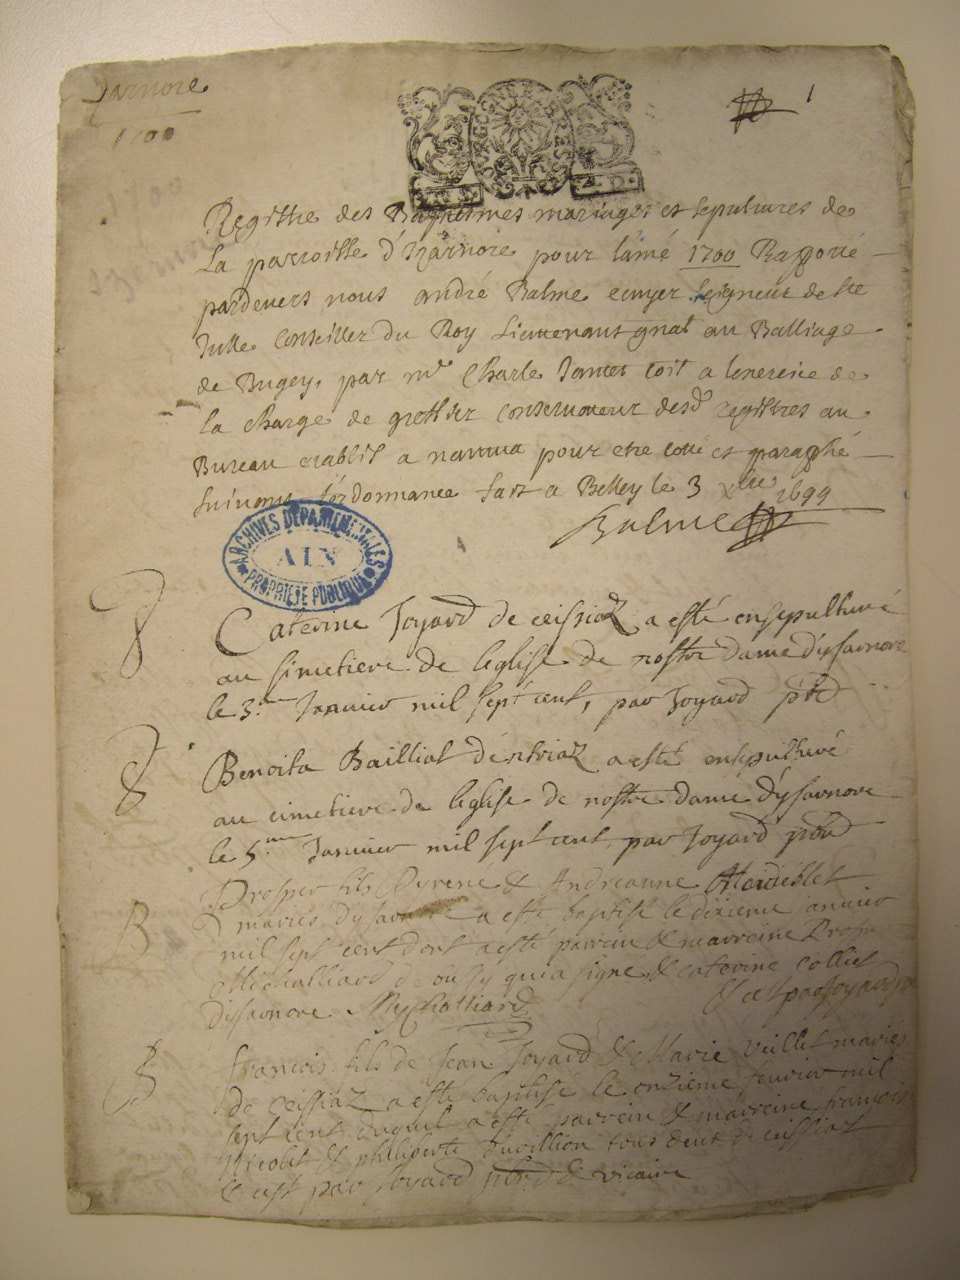 Izarnore
1700
1
Registre des Baptesmes mariages et sepultures de
La parroisse d'Izarnore pour l'aneé 1700 Rapporté
pardevers nous andré Balme ecuyer seigneur de Ste
Julle Conseiller du Roy Lieutenant gnal au Balliage
de Bugey, par mre Charle Jantet Commis a lexercice de
la Charge de greffier conservateur desd registres au
Bureau establit a nantua pour etre coté et paraphé
suivant l'ordonnance fait a Belley le 3 xbre 1699
Balme
ARCHIVES DÉPARTEMENTALES
AIN
PROPRIÉTÉ PUBLIQUE
Caterine Joyard de ceissiaz a esté ensepulturé
au simetiere de leglise de nostre dame dysarnore
le 3.me Janvier mil sept cent, par Joyard pbr
Benoita Bailliat a esté ensepulturé
au cimetiere de leglise de nostre dame dysarnore
le 5.me Janvier mil sept cent, par Joyard pbr
B
Prosper fils Pyrene & Andreanne
mariés dysarnore a esté baptisé le dixieme janvier
mil sept cent dont a esté parrein & marreine Prosper
Michalliard qui a signé & caterine Colliet
dysarnore. Michalliard & cest par Joyard
B
francois fils de Jean Joyard & Marie Veillet mariés
de ceissiaz a esté baptisé le onzieme fevrier mil
sept cent duquel a esté parrein & marreine francois
Nicolet & philliberte tous deux de ceissiat
& cest par Joyard pbr & vicaire